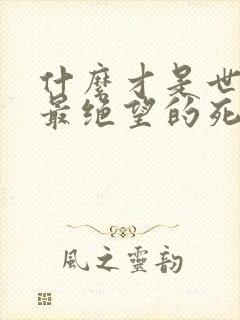 什麽才是世
最绝望的死
風之靈韵